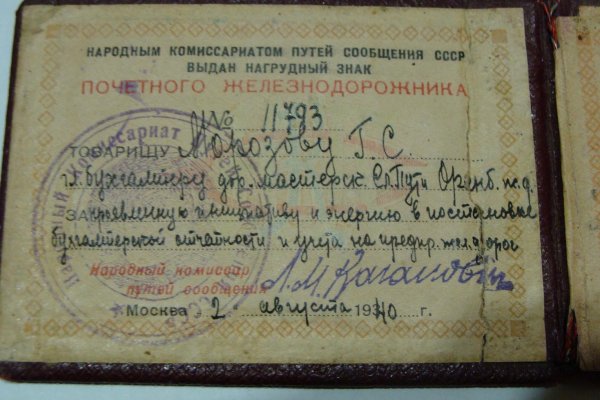 НАРОДНЫМ КОМИССАРИАТОМ ПУТЕЙ СООБЩЕНИЯ СССР
ВЫДАН НАГРУДНЫЙ ЗНАК
ПОЧЕТНОГО ЖЕЛЕЗНОДОРОЖНИКА
№ 11793
ТОВАРИЩУ Морозову Г. С.
гл. бухгалтеру дор. мастерск. Сл. Пути Оренб. ж. д.
ЗА проявленную инициативу и энергию в постановке
бухгалтерской отчетности и учета на предпр. жел. дорог
Народный комиссар
путей сообщения Л. М. Каганович
Москва 2 августа 1940 г.